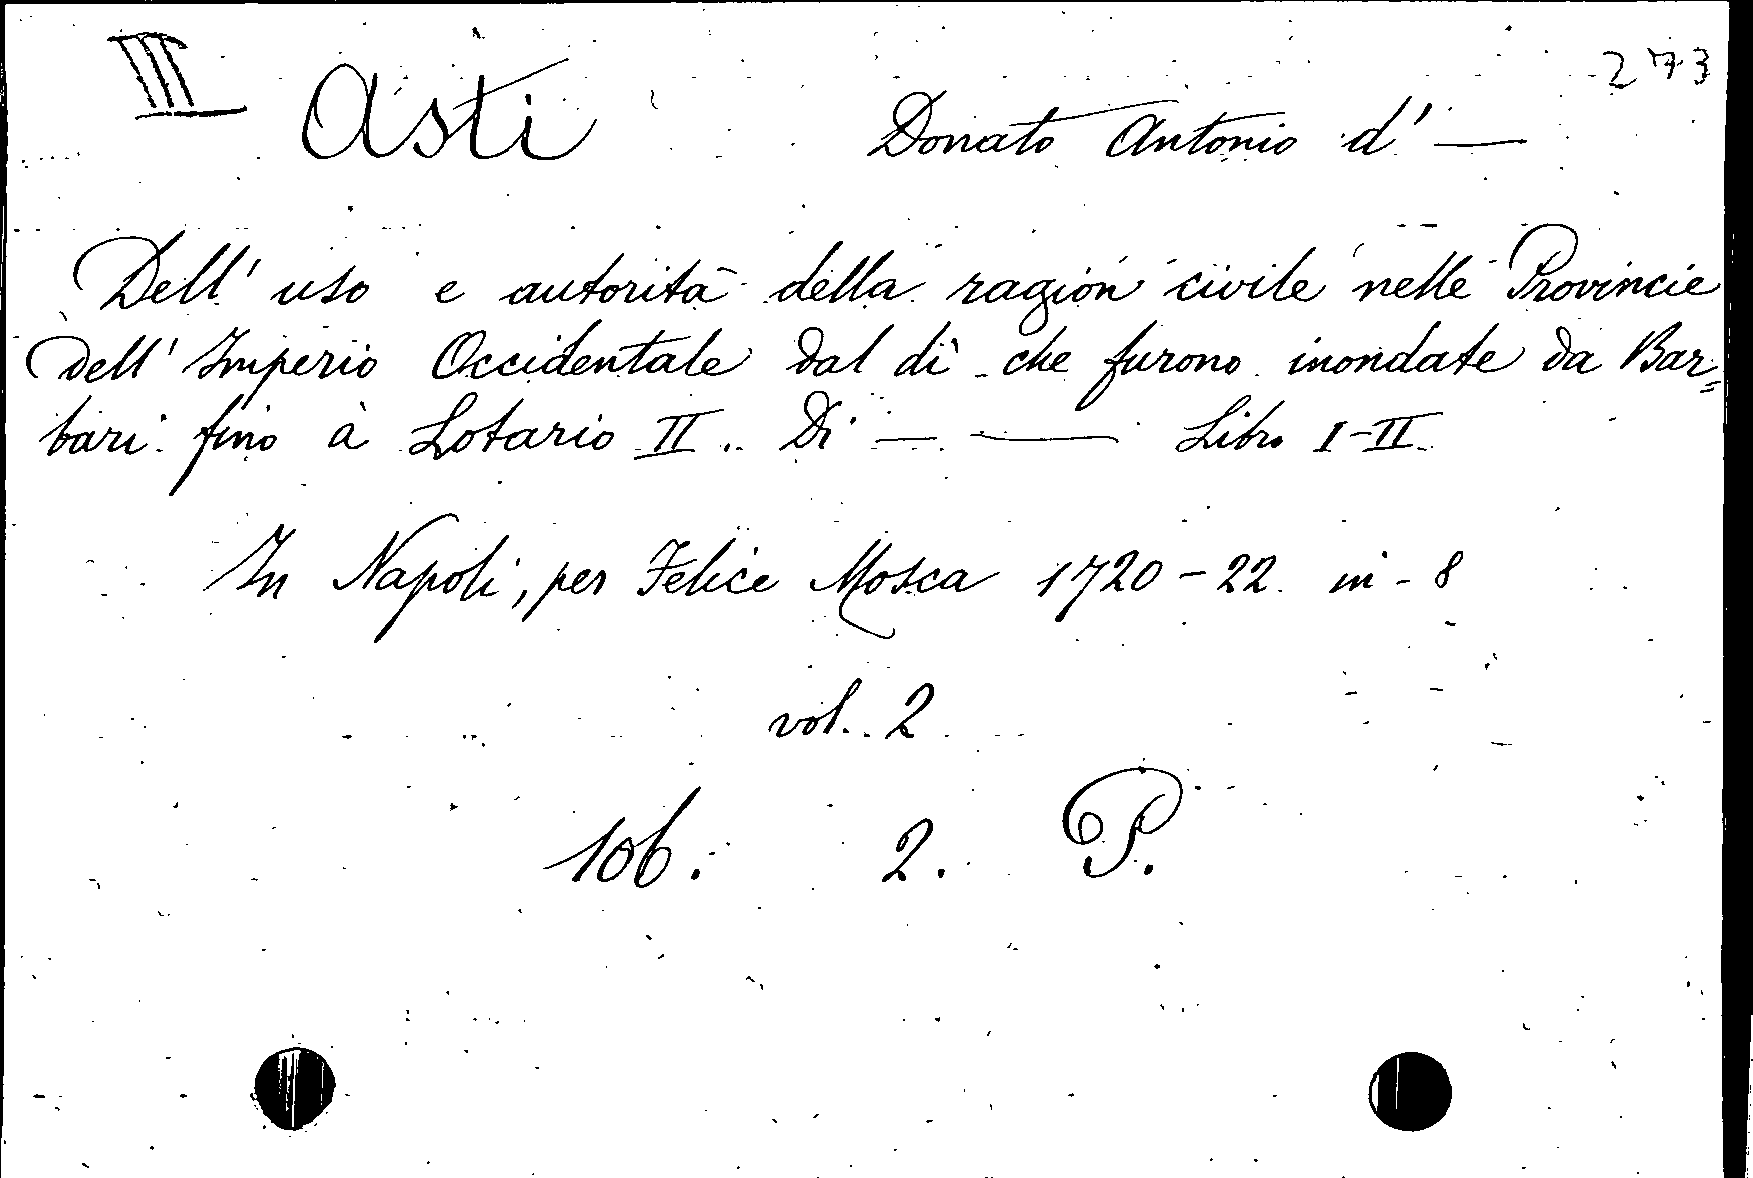 III Asti Donato Antonio d' — 273
Dell' uso e autorità della ragion civile nelle Provincie
dell' Imperio Occidentale dal dì che furono inondate da Bar=
bari fino à Lotario II. Di — — Libro I-II
In Napoli, per Felice Mosca 1720-22 in-8
vol. 2
106. 2. P.